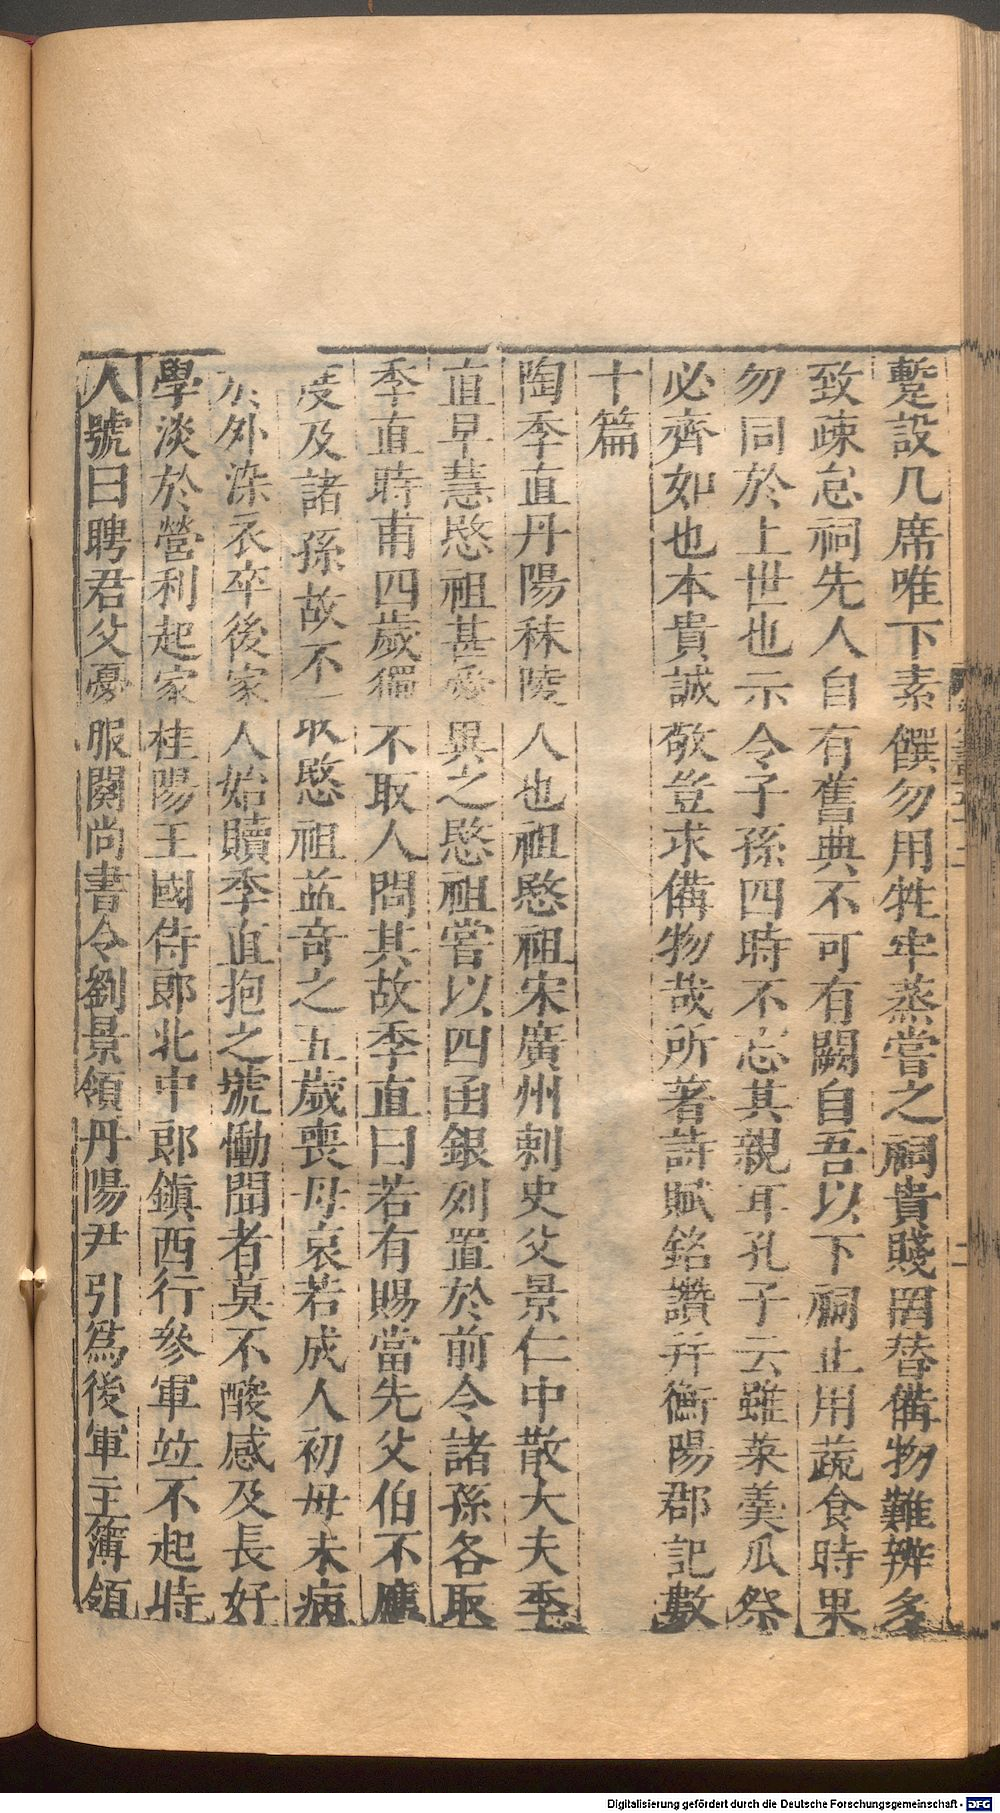 蹔設几席唯下素饌勿用牲牢蒸嘗之祠貴賤罔替備物難辨多
致疎怠祠先人自有舊典不可有闕自吾以下祠止用蔬食時果
勿同於上世也示令子孫四時不忘其親耳孔子云雖菜羹瓜祭
必齊如也本貴誠敬豈求備物哉所著詩賦銘讚并衡陽郡記數
十篇
陶季直丹陽秣陵人也祖愍祖宋廣州刺史父景仁中散大夫季
直早慧愍祖甚愛異之愍祖嘗以四函銀列置於前令諸孫各取
季直時甫四歲獨不取人問其故季直曰若有賜當先父伯不應
度及諸孫故不取愍祖益奇之五歲喪母哀若成人初母未病
於外染衣卒後家人始贖季直抱之號慟聞者莫不酸感及長好
學淡於營利起家桂陽王國侍郎北中郎鎮西行參軍竝不起時
人號曰聘君父憂服闋尚書令劉景領丹陽尹引為後軍主簿領
二
Digitalisierung gefördert durch die Deutsche Forschungsgemeinschaft - DFG